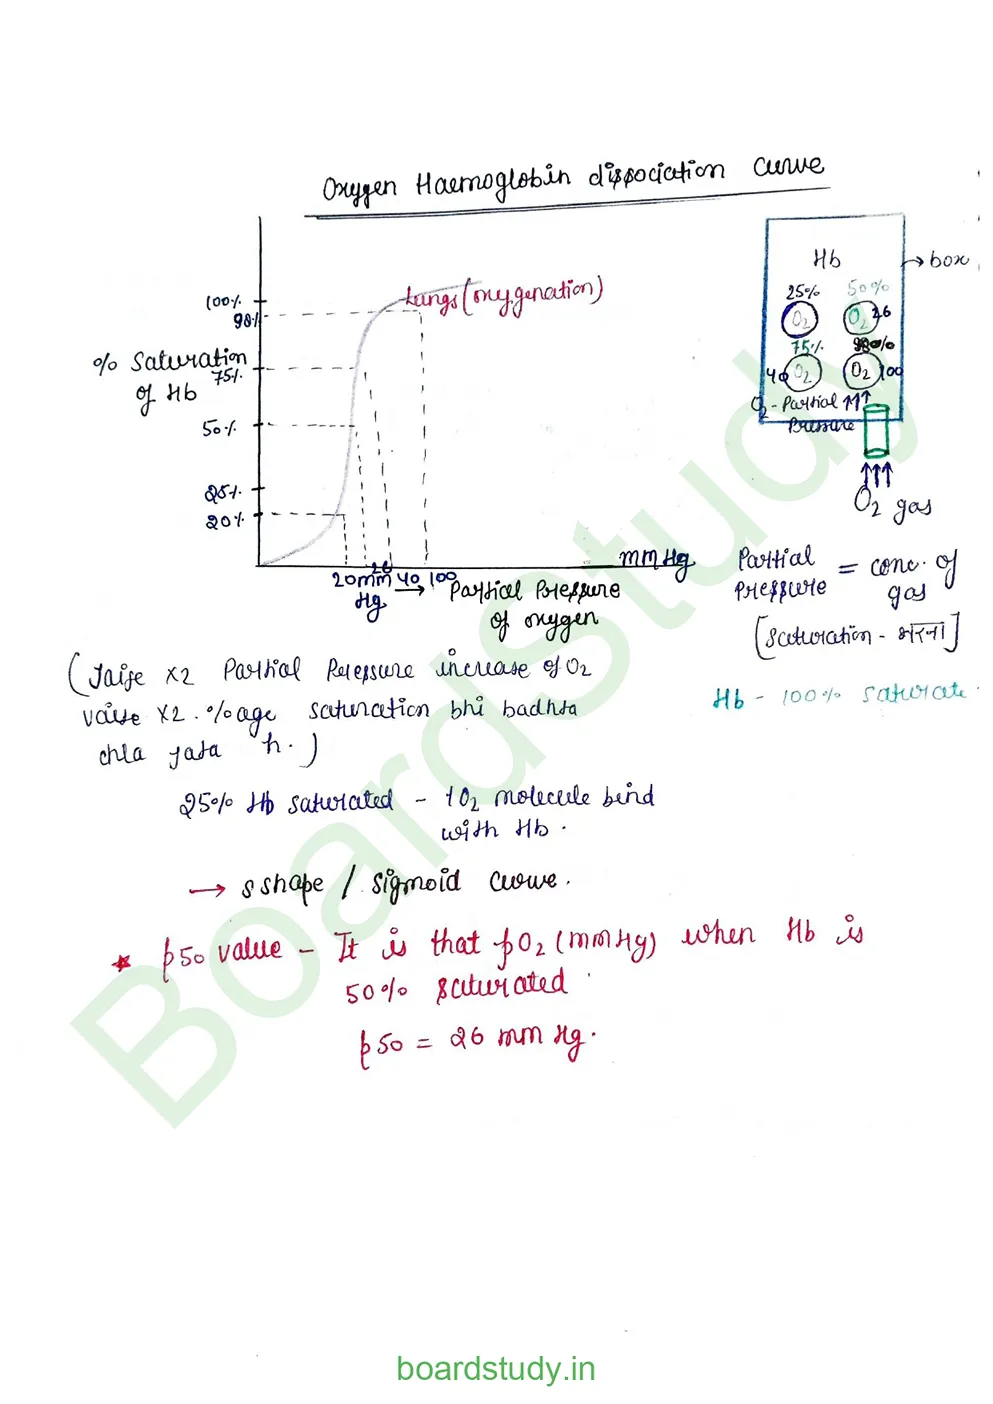 Oxygen Haemoglobin dissociation curve
100%
98%
% saturation
of Hb
75%
50%
25%
20%
Lungs (oxygenation)
mm Hg
20mm
Hg
26
40
100
→ Partial Pressure
of oxygen
Hb
→ box
25%
50%
O2
O2 26
75%
40 O2
O2 100
O2 - Partial ↑↑↑
Pressure
↑↑↑
O2 gas
Partial
Pressure = conc. of
gas
[saturation - भरना]
Hb - 100% saturate.
(Jaise x2 Partial Pressure increase of O2
vaise x2. %age saturation bhi badhta
chla jata h.)
25% Hb saturated - 1O2 molecule bind
with Hb.
→ S shape / Sigmoid curve.
★ p50 value - It is that pO2 (mmHg) when Hb is
50% saturated
p50 = 26 mm Hg.
Boardstudy
boardstudy.in